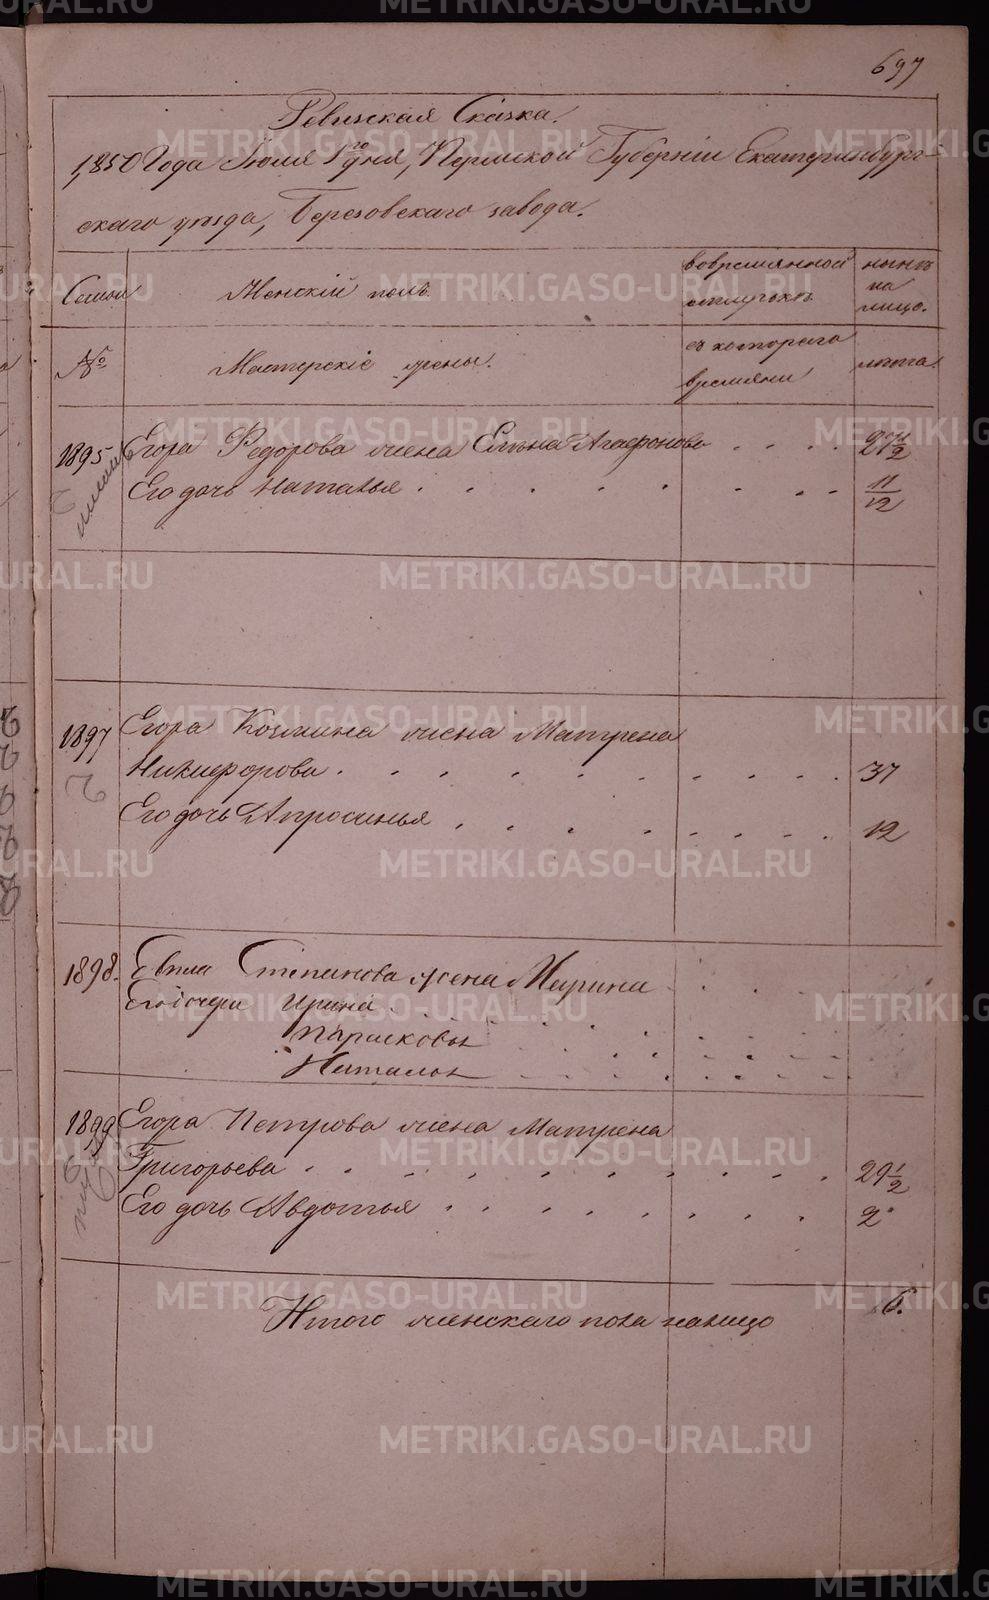 697
Ревизская Сказка.
1850 Года Июля 1го дня, Пермской Губернiи Екатеринбург-
скаго уѣзда, Березовскаго завода.
Семьи
Женскiй полъ.
вовремянной отлучкѣ
нынѣ на лицо.
№
Мастерскiе жены.
съ котораго времяни
лѣта.
1895 Егора Федорова жена Елена Агафонова 21 1/2
Его дочь Наталья 11/12
1897 Егора Козмина жена Матрена
Никифорова 37
Его дочь Апросинья 12
1898. Евпла Степанова жена Марина
Его дочери Ирина
Парасковья
Наталья
1899 Егора Петрова жена Матрена
Григорьева 29 1/2
Его дочь Авдотья 2
Итого женскаго пола налицо 6.
METRIKI.GASO-URAL.RU